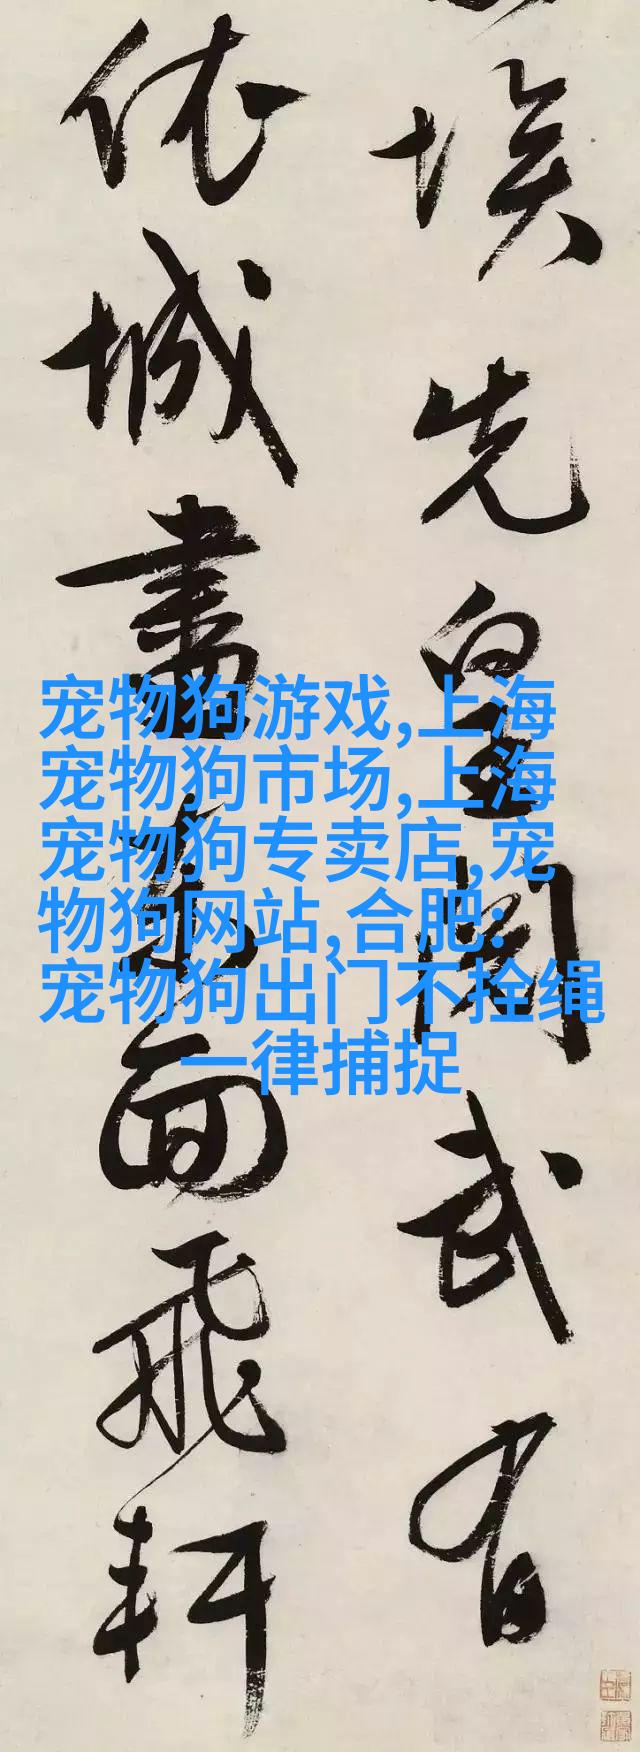 埃先皇閱武有
依城盡東面飛軒
宠物狗游戏,上海
宠物狗市场,上海
宠物狗专卖店,宠
物狗网站,合肥:
宠物狗出门不拴绳
一律捕捉